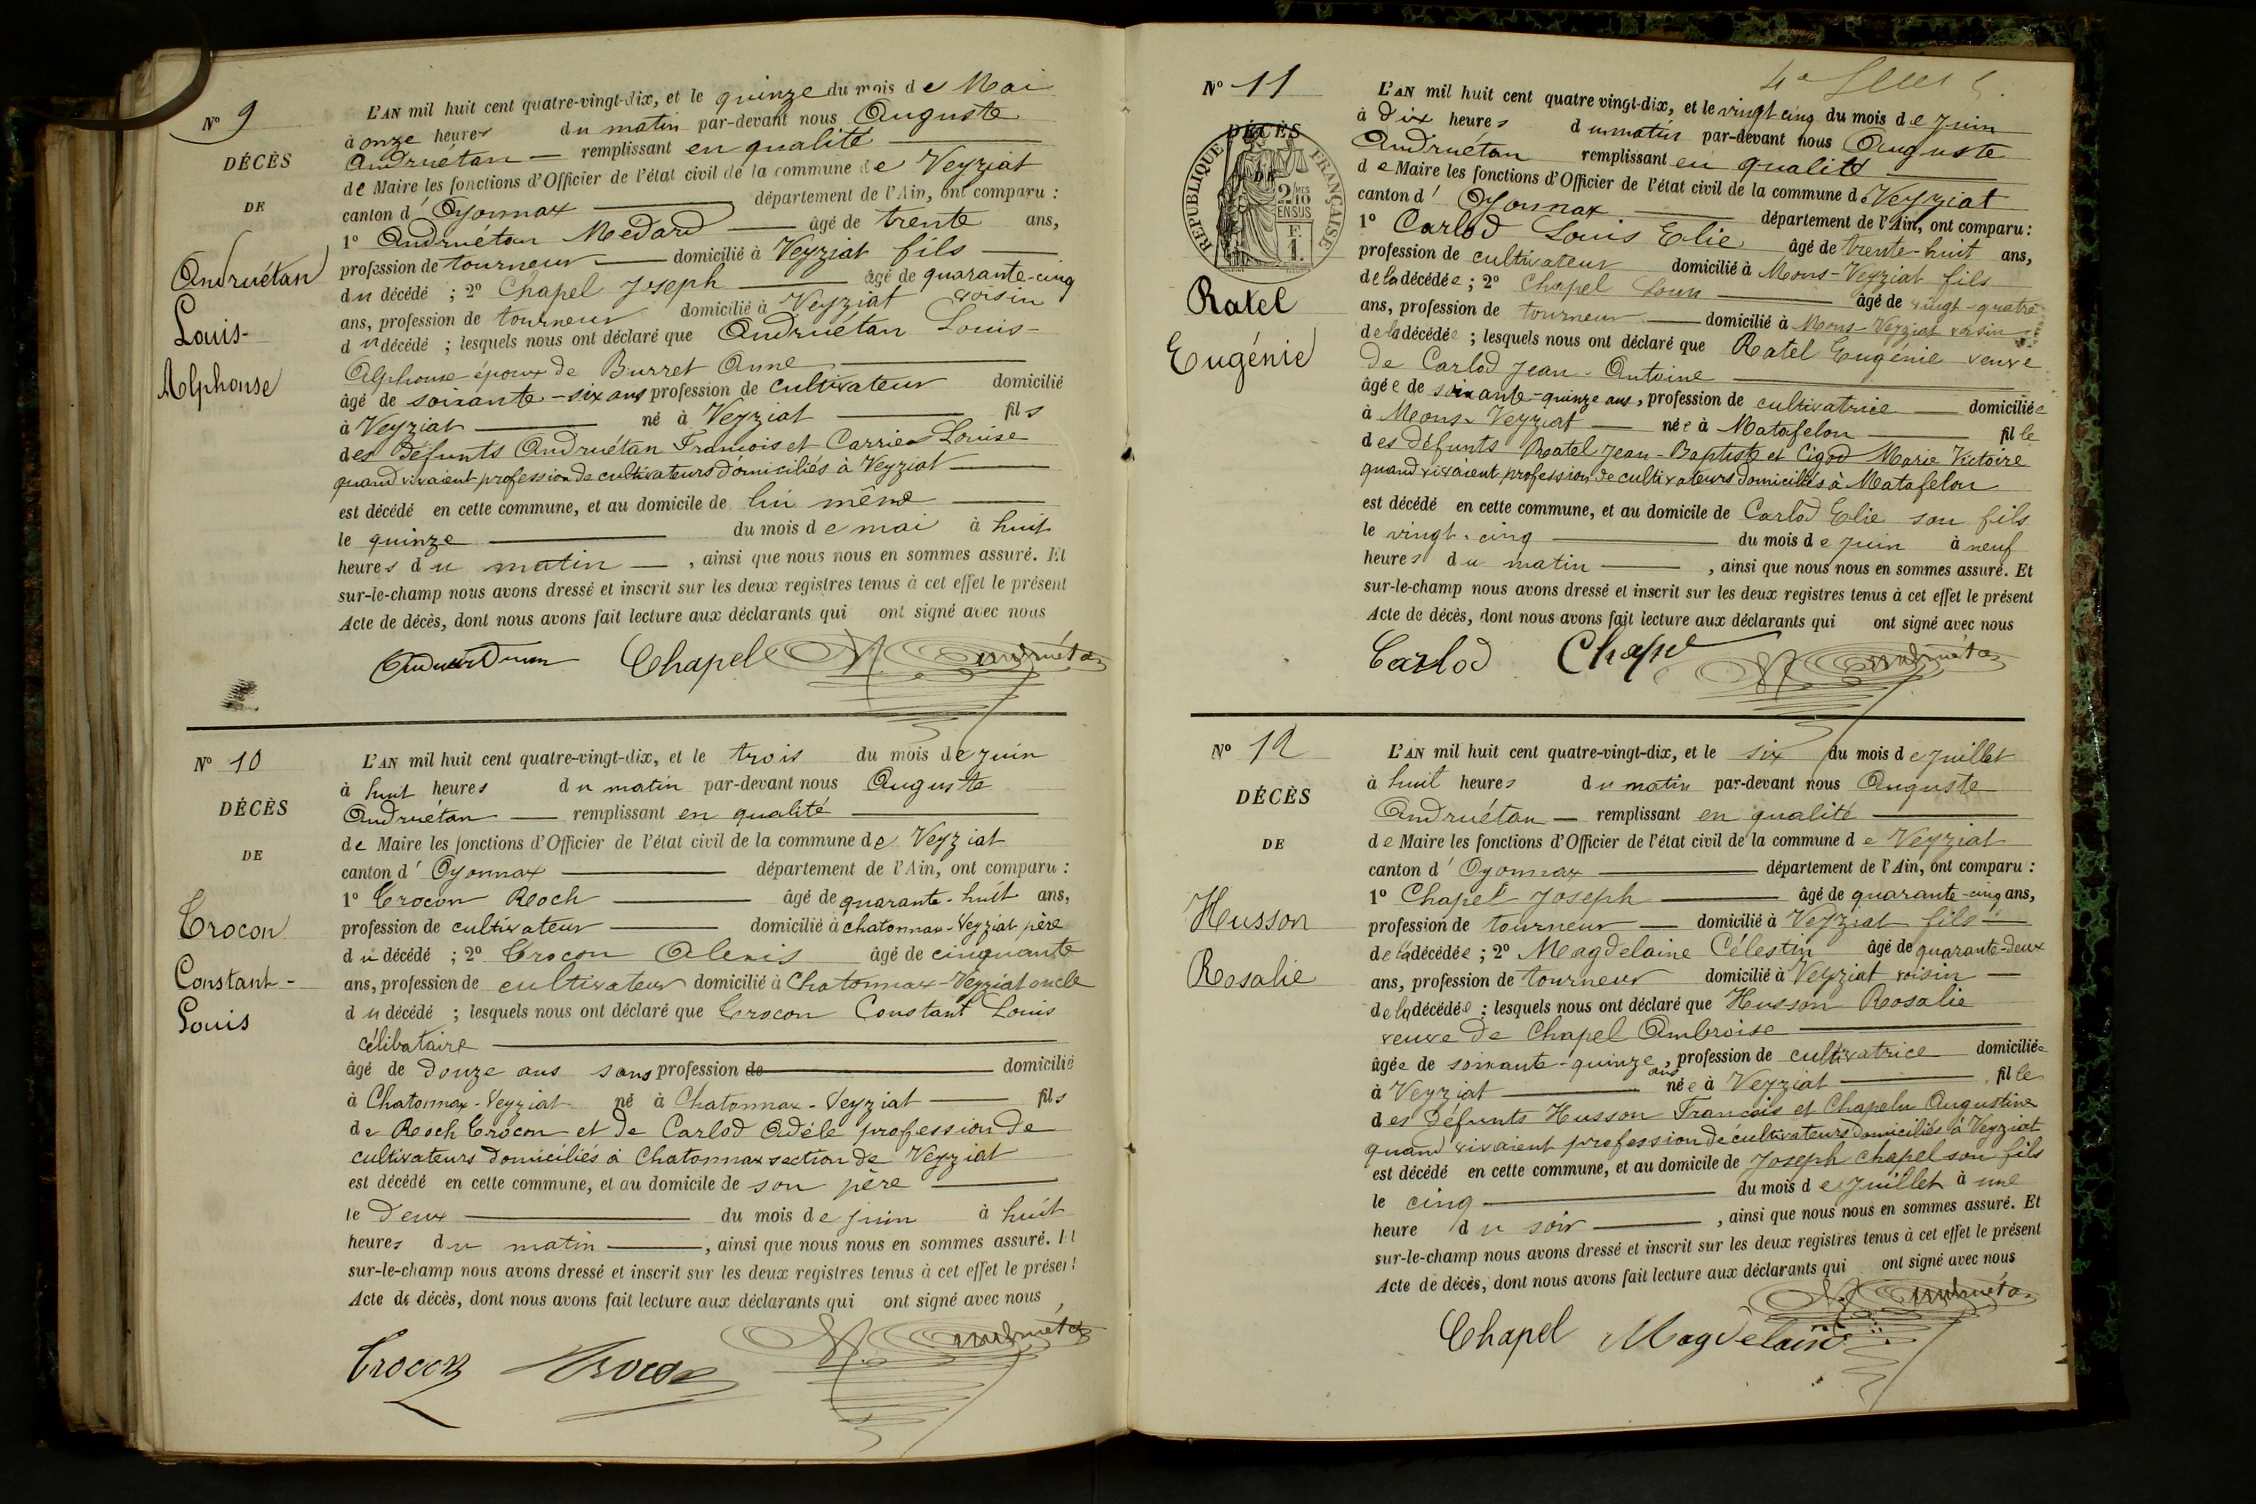 N° 9
DÉCÈS
DE
Andruétan
Louis-
Alphonse
L'AN mil huit cent quatre-vingt-dix, et le quinze du mois de Mai
à onze heures du matin par-devant nous Auguste
Andruétan remplissant en qualité
de Maire les fonctions d'Officier de l'état civil de la commune de Veyziat
canton d' Oyonnax département de l'Ain, ont comparu :
1° Andruétan Medard âgé de trente ans,
profession de tourneur domicilié à Veyziat fils
du décédé ; 2° Chapel Joseph âgé de quarante-cinq
ans, profession de tourneur domicilié à Veyziat voisin
du décédé ; lesquels nous ont déclaré que Andruétan Louis-
Alphonse époux de Burret Anne
âgé de soixante-six ans profession de cultivateur domicilié
à Veyziat né à Veyziat fils
des Défunts Andruétan François et Carrier Louise
quand vivaient profession de cultivateurs domiciliés à Veyziat
est décédé en cette commune, et au domicile de lui même
le quinze du mois de mai à huit
heures du matin , ainsi que nous nous en sommes assuré. Et
sur-le-champ nous avons dressé et inscrit sur les deux registres tenus à cet effet le présent
Acte de décès, dont nous avons fait lecture aux déclarants qui ont signé avec nous
Chapel Andruétan
N° 10
DÉCÈS
DE
Crocon
Constant-
Louis
L'AN mil huit cent quatre-vingt-dix, et le trois du mois de juin
à huit heures du matin par-devant nous Auguste
Andruétan remplissant en qualité
de Maire les fonctions d'Officier de l'état civil de la commune de Veyziat
canton d' Oyonnax département de l'Ain, ont comparu :
1° Crocon Roch âgé de quarante-huit ans,
profession de cultivateur domicilié à chatonnax-Veyziat père
du décédé ; 2° Crocon Alexis âgé de cinquante
ans, profession de cultivateur domicilié à Chatonnax-Veyziat oncle
du décédé ; lesquels nous ont déclaré que Crocon Constant Louis
célibataire
âgé de douze ans sans profession de domicilié
à Chatonnax-Veyziat né à Chatonnax-Veyziat fils
de Roch Crocon et de Carlod Adéle profession de
cultivateurs domiciliés à Chatonnax section de Veyziat
est décédé en cette commune, et au domicile de son père
le Deux du mois de juin à huit
heures du matin , ainsi que nous nous en sommes assuré. Et
sur-le-champ nous avons dressé et inscrit sur les deux registres tenus à cet effet le présent
Acte de décès, dont nous avons fait lecture aux déclarants qui ont signé avec nous
Crocon Crocon Andruétan
4e
N° 11
DÉCÈS
DE
RÉPUBLIQUE FRANÇAISE
2/10 EN SUS
Ratel
Eugénie
L'AN mil huit cent quatre vingt-dix, et le vingt cinq du mois de Juin
à Dix heures du matin par-devant nous Auguste
Andruétan remplissant en qualité
de Maire les fonctions d'Officier de l'état civil de la commune de Veyziat
canton d' Oyonnax département de l'Ain, ont comparu :
1° Carlod Louis Elie âgé de trente-huit ans,
profession de cultivateur domicilié à Mons-Veyziat fils
de la décédée ; 2° Chapel Louis âgé de vingt-quatre
ans, profession de tourneur domicilié à Mons-Veyziat voisin
de la décédée ; lesquels nous ont déclaré que Ratel Eugénie veuve
de Carlod Jean-Antoine
âgée de soixante-quinze ans, profession de cultivatrice domiciliée
à Mons-Veyziat née à Matafelon fille
des défunts Ratel Jean-Baptiste et Cigod Marie Victoire
quand vivaient profession de cultivateurs domiciliés à Matafelon
est décédé en cette commune, et au domicile de Carlod Elie son fils
le vingt-cinq du mois de juin à neuf
heures du matin , ainsi que nous nous en sommes assuré. Et
sur-le-champ nous avons dressé et inscrit sur les deux registres tenus à cet effet le présent
Acte de décès, dont nous avons fait lecture aux déclarants qui ont signé avec nous
Carlod Chapel Andruétan
N° 12
DÉCÈS
DE
Husson
Rosalie
L'AN mil huit cent quatre-vingt-dix, et le six du mois de juillet
à huit heures du matin par-devant nous Auguste
Andruétan remplissant en qualité
de Maire les fonctions d'Officier de l'état civil de la commune de Veyziat
canton d' Oyonnax département de l'Ain, ont comparu :
1° Chapel Joseph âgé de quarante-cinq ans,
profession de tourneur domicilié à Veyziat fils
de la décédée ; 2° Magdelaine Célestin âgé de quarante-deux
ans, profession de tourneur domicilié à Veyziat voisin
de la décédée ; lesquels nous ont déclaré que Husson Rosalie
veuve de Chapel Ambroise
âgée de soixante-quinze ans, profession de cultivatrice domiciliée
à Veyziat née à Veyziat fille
des défunts Husson François et Chapelu Augustine
quand vivaient profession de cultivateurs domiciliés à Veyziat
est décédé en cette commune, et au domicile de Joseph Chapel son fils
le cinq du mois de Juillet à une
heure du soir , ainsi que nous nous en sommes assuré. Et
sur-le-champ nous avons dressé et inscrit sur les deux registres tenus à cet effet le présent
Acte de décès, dont nous avons fait lecture aux déclarants qui ont signé avec nous
Chapel Magdelaine Andruétan